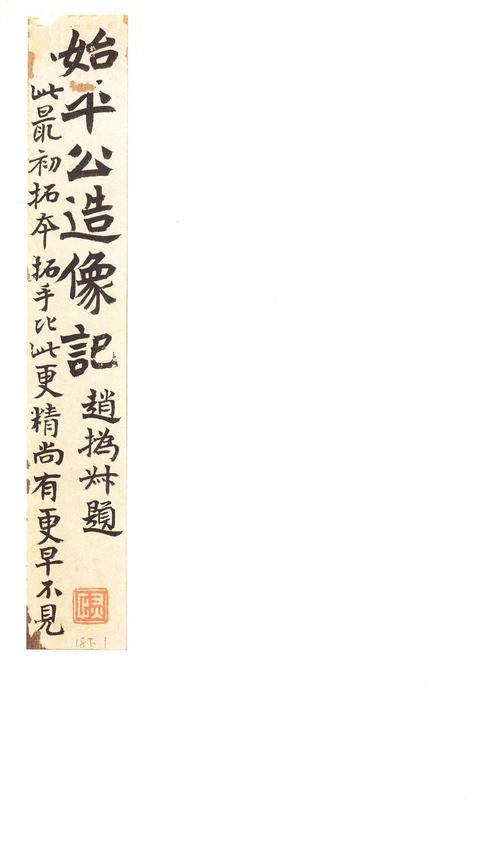 始平公造像記
趙撝叔題
此最初拓本拓手比此更精尚有更早不見